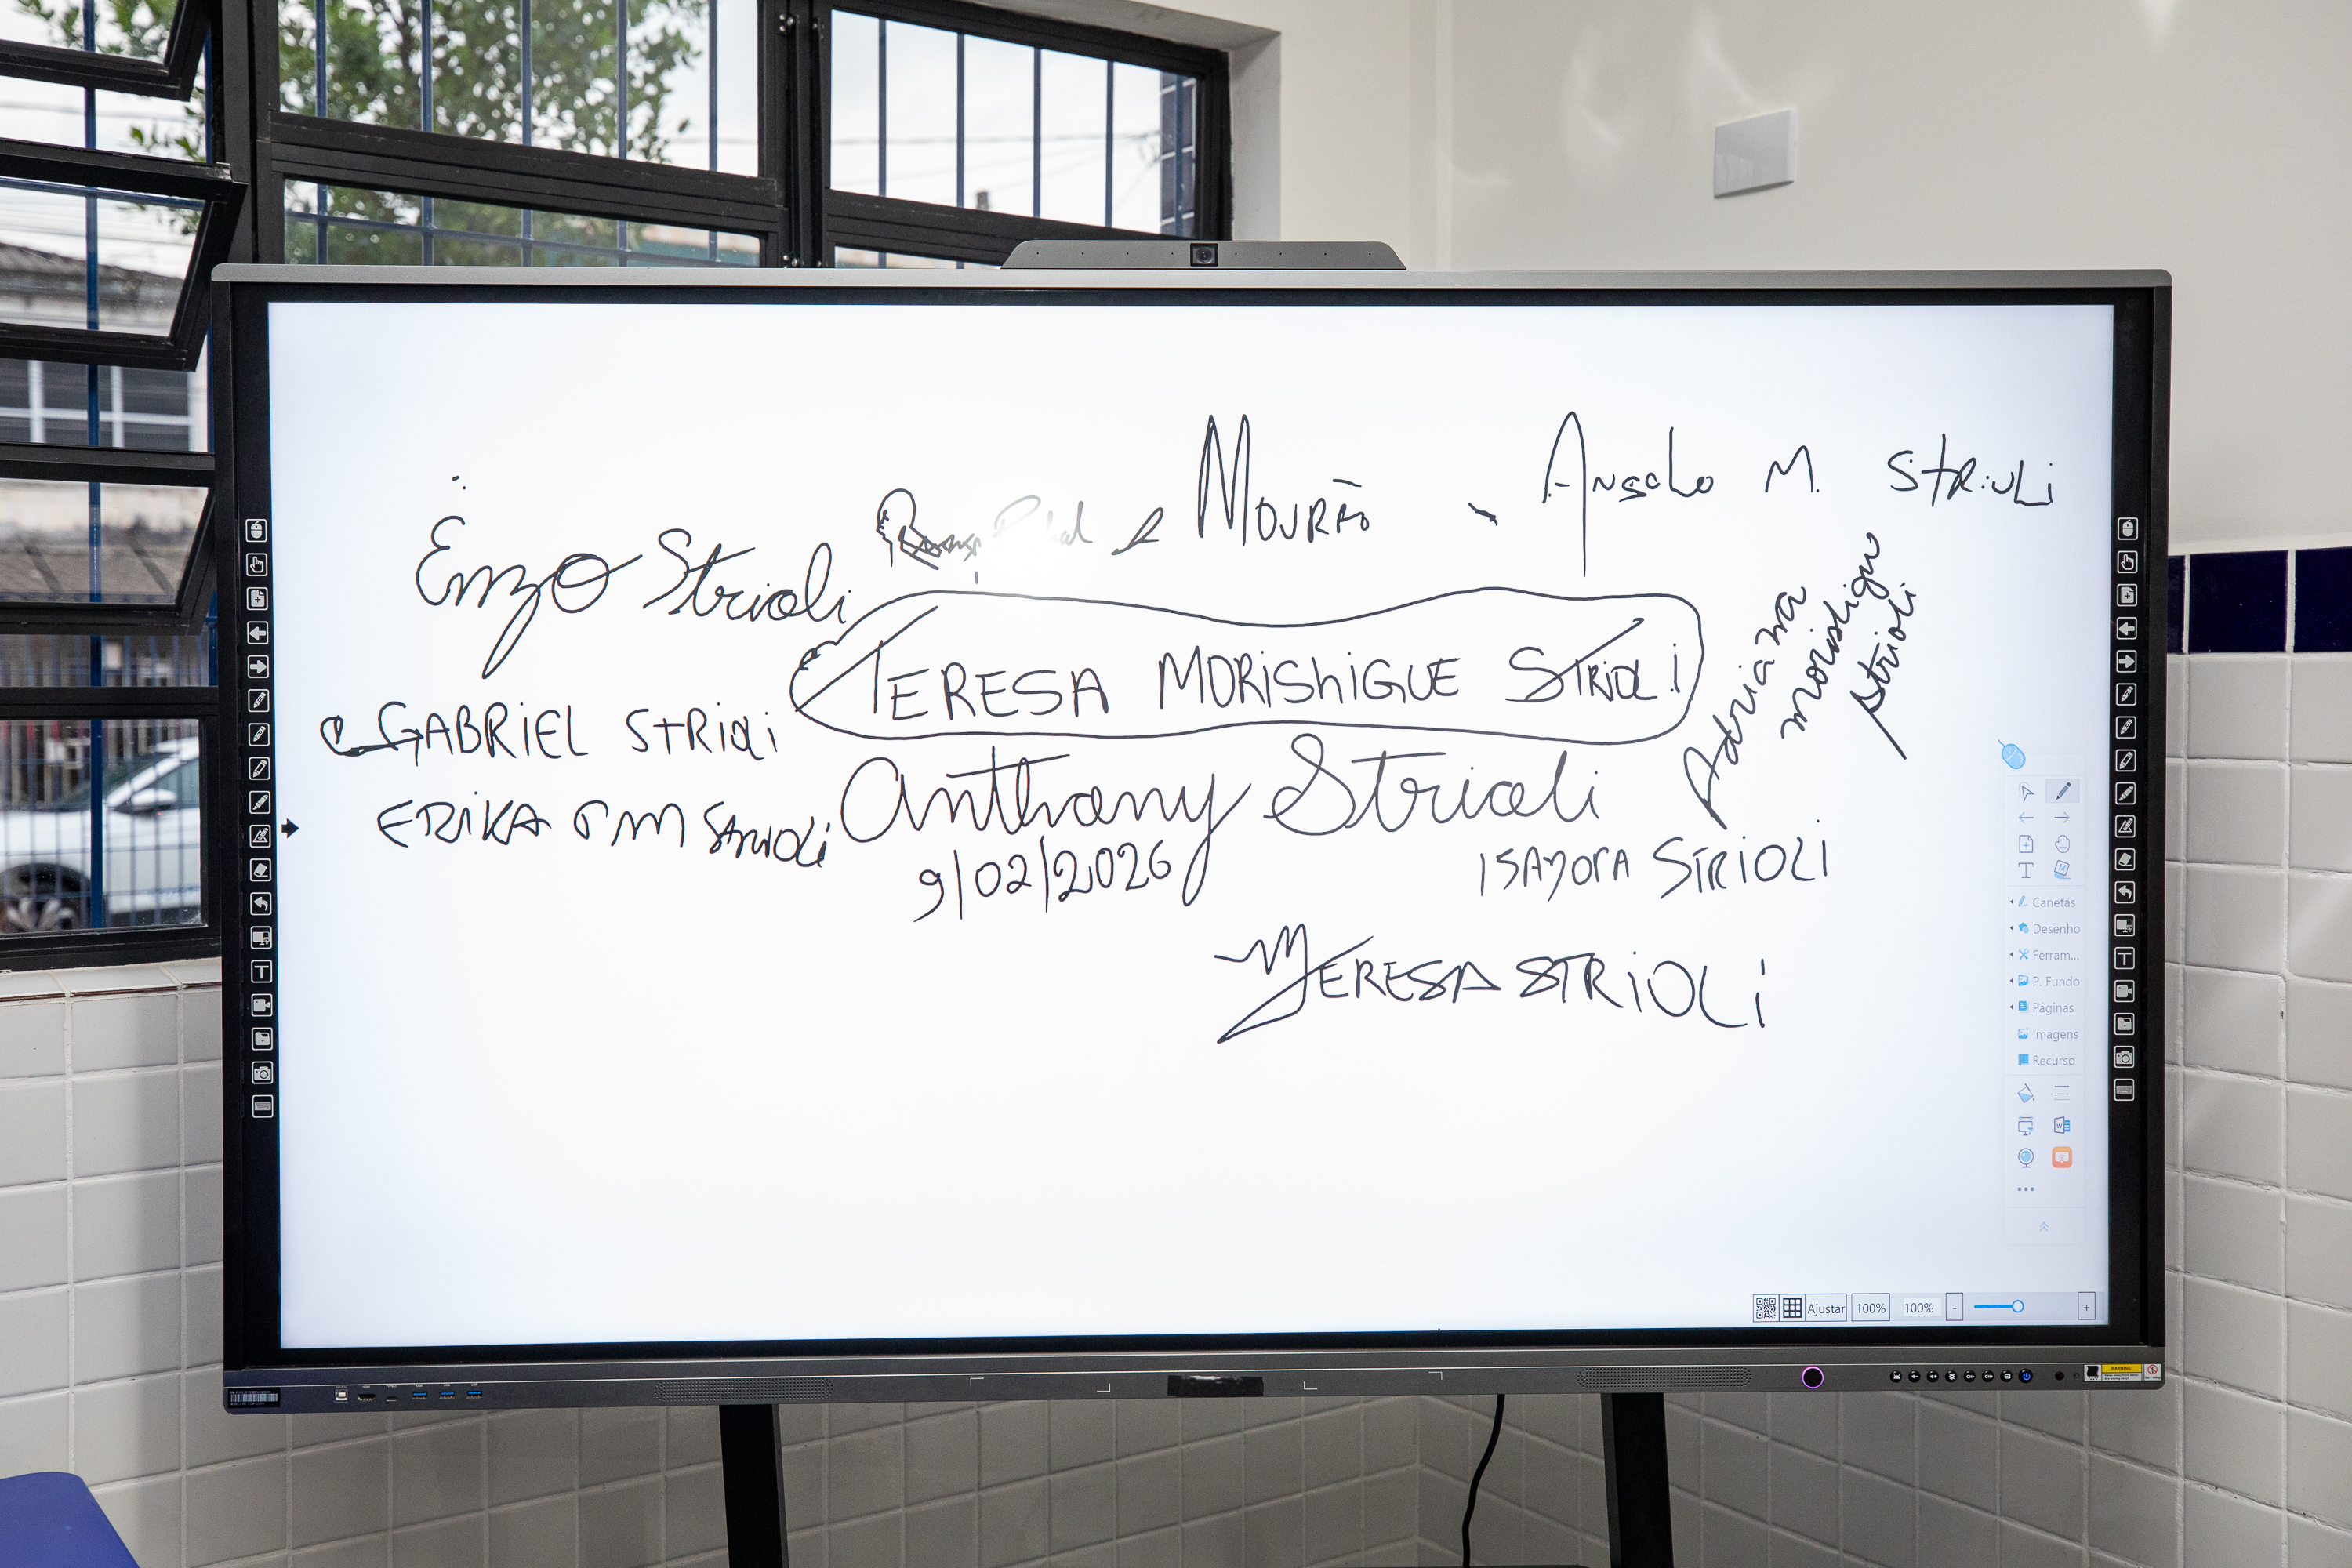 MOURÃO
Angelo M. Strioli
Enzo Strioli
TERESA MORISHIGUE STRIOLI
Adriana
morishigue
strioli
GABRIEL STRIOLI
Anthony Strioli
ERIKA T M Strioli
9/02/2026
ISAYORA STRIOLI
TERESA STRIOLI
Canetas
Desenho
Ferram...
P. Fundo
Páginas
Imagens
Recurso
Ajustar 100% 100% - +
WARNING!